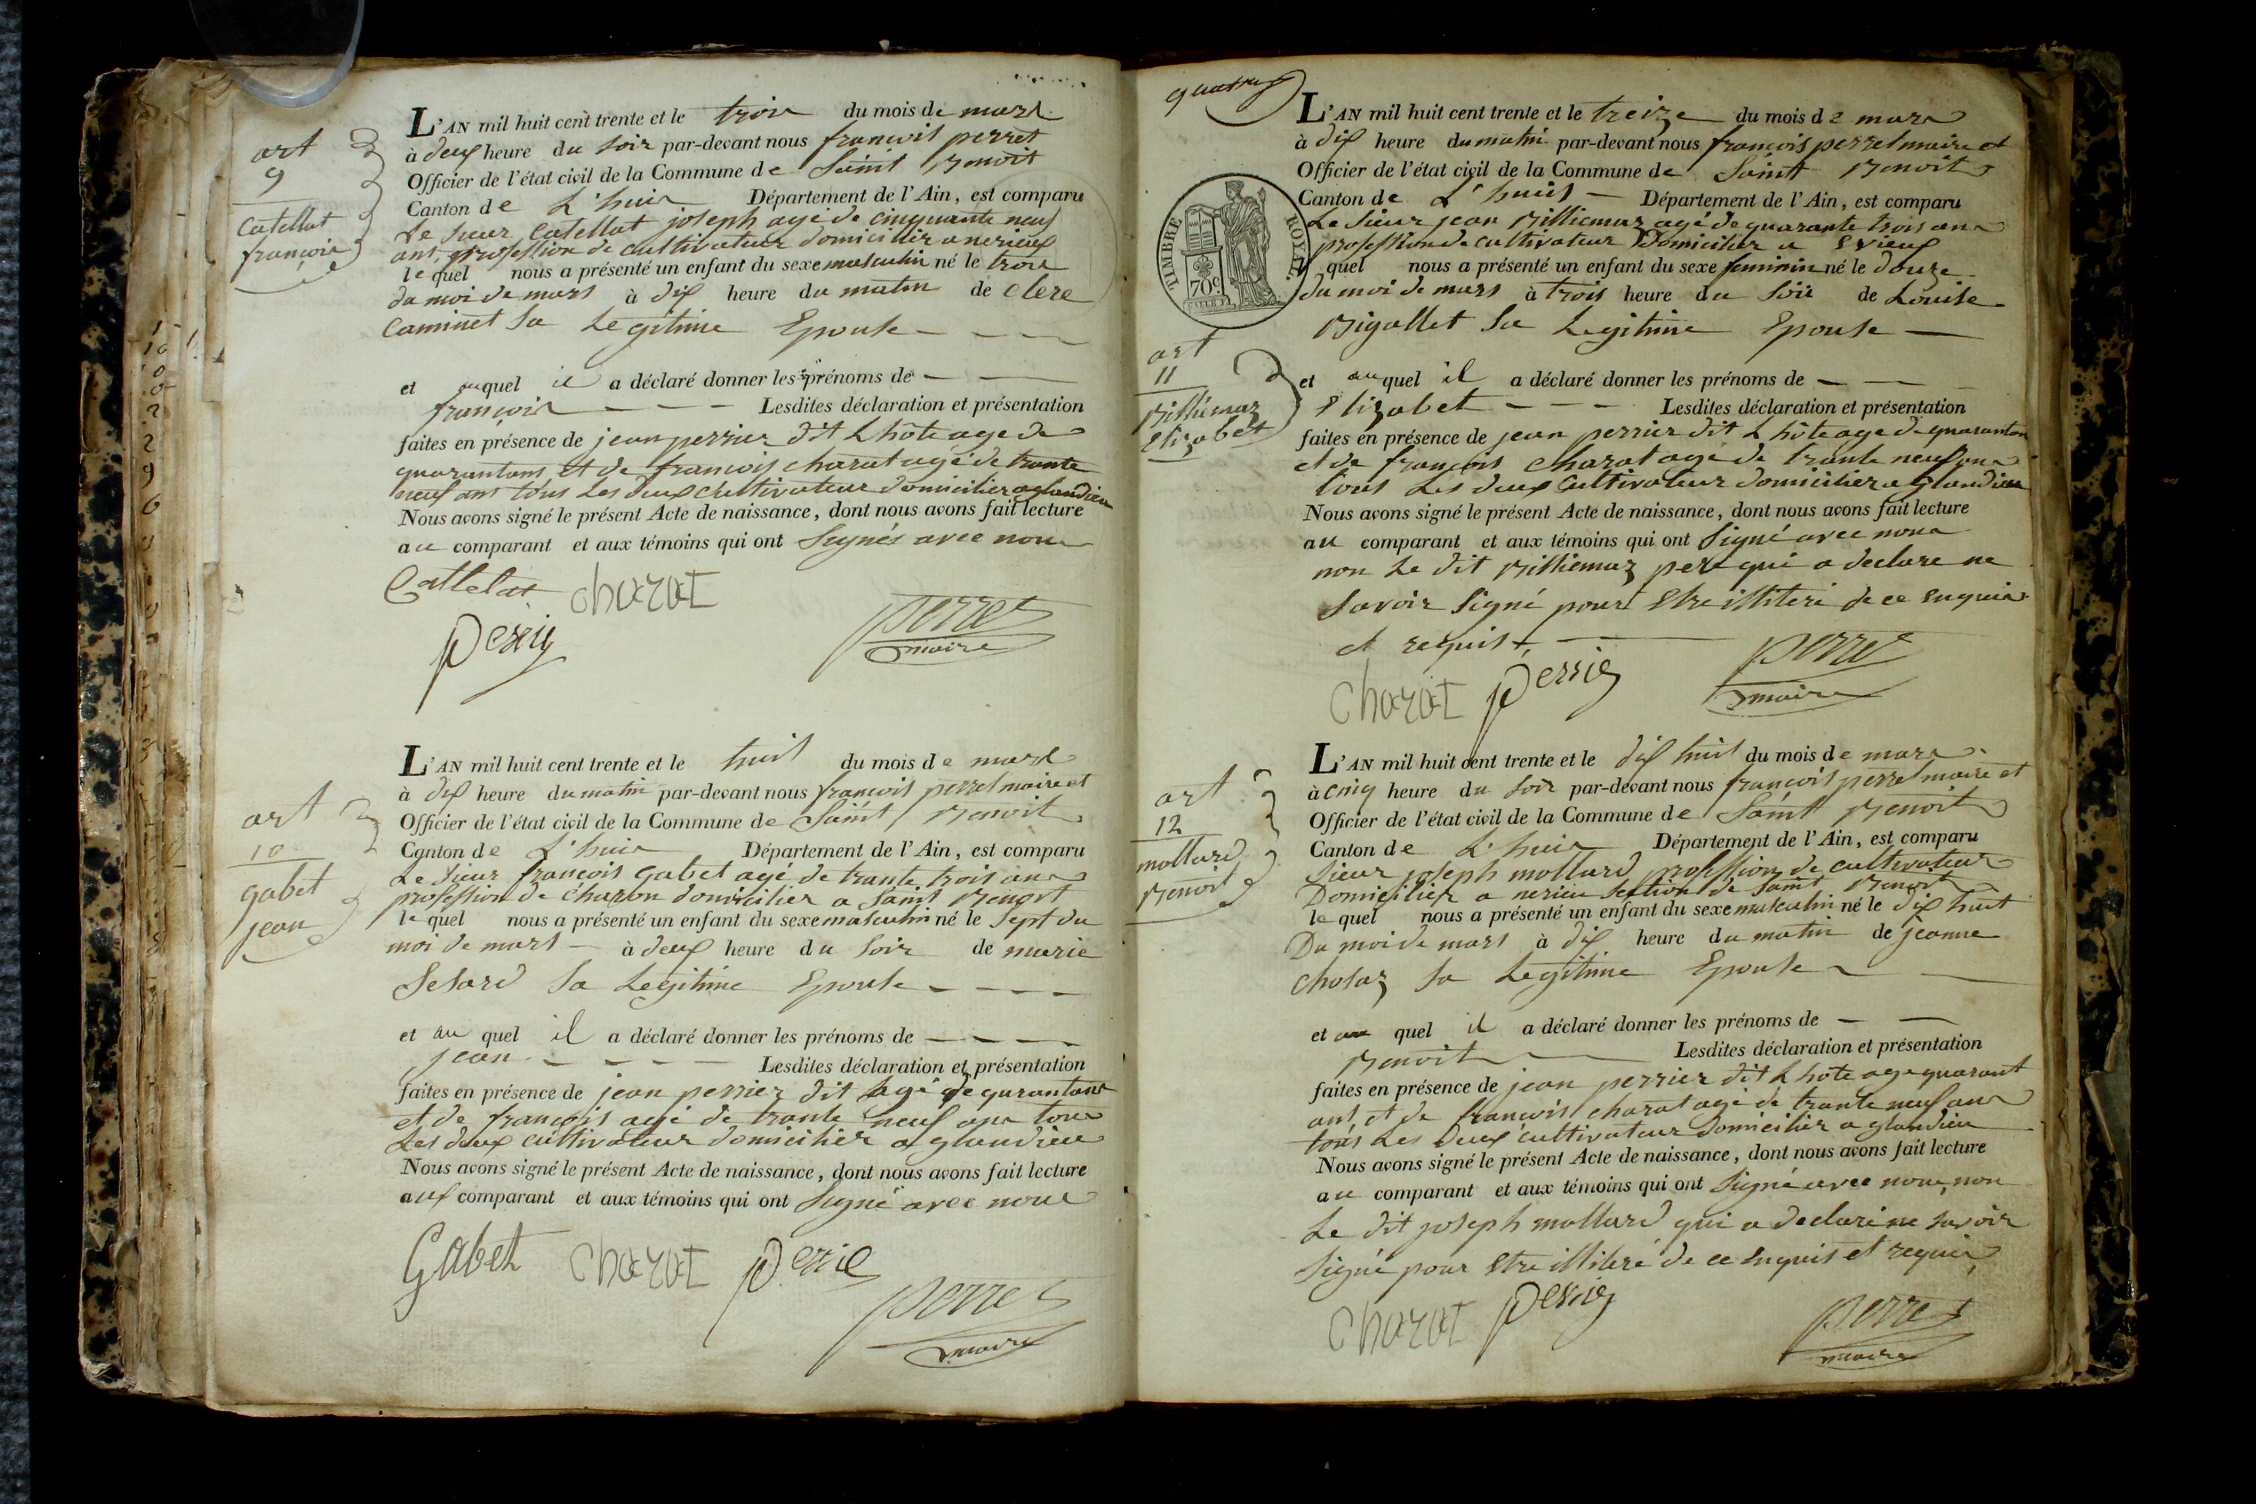 art
9
Catellat
françois
L'AN mil huit cent trente et le trois du mois de mars
à deux heure du soir par-devant nous françois perret
Officier de l'état civil de la Commune de Saint Benoit
Canton de L'huis Département de l'Ain, est comparu
Le sieur Catellat joseph agé de cinquante neuf
ans, profession de cultivateur domicilier a nerieux
lequel nous a présenté un enfant du sexe masculin né le trois
du moi de mars à dix heure du matin de clere
Caminet Sa Legitime Epouse
et auquel il a déclaré donner les prénoms de
françois Lesdites déclaration et présentation
faites en présence de jean perrier dit L hôte age de
quarantans et de françois charat agé de trante
neuf ans tous Les deux cultivateur domicilier a glandieu
Nous avons signé le présent Acte de naissance, dont nous avons fait lecture
au comparant et aux témoins qui ont Signés avec nous
Catlelat charat
perrie perret
maire
art
10
gabet
jean
L'AN mil huit cent trente et le huit du mois de mars
à dix heure du matin par-devant nous françois perret maire et
Officier de l'état civil de la Commune de Saint Benoit
Canton de L'huis Département de l'Ain, est comparu
Le Sieur françois gabet agé de trante trois ans
profession de charon domicilier a Saint Benoit
lequel nous a présenté un enfant du sexe masculin né le Sept du
moi de mars à deux heure du soir de marie
Selard Sa Legitime Epouse
et au quel il a déclaré donner les prénoms de
jean Lesdites déclaration et présentation
faites en présence de jean perrier dit agé de qurantans
et de françois agé de trante neuf ans tous
Les deux cultivateur domicilier a glandieu
Nous avons signé le présent Acte de naissance, dont nous avons fait lecture
aux comparant et aux témoins qui ont Signé avec nous
Gabet charat perrie
perret
maire
quatre
TIMBRE ROYAL
70c
art
11
Billiemaz
Elizabet
L'AN mil huit cent trente et le treize du mois de mars
à dix heure du matin par-devant nous françois perret maire et
Officier de l'état civil de la Commune de Saint Benoit
Canton de L'huis Département de l'Ain, est comparu
Le Sieur jean Billiemaz agé de quarante trois ans
profession de cultivateur Domicilier a Evieux
quel nous a présenté un enfant du sexe feminin né le douze
du moi de mars à trois heure du Soir de Louise
Bigallet Sa Legitime Epouse
et auquel il a déclaré donner les prénoms de
Elizabet Lesdites déclaration et présentation
faites en présence de jean perrier dit L hôte age de quarantan
et de françois charat agé de trante neuf ans
tous Les deux Cultivateur domicilier a glandieu
Nous avons signé le présent Acte de naissance, dont nous avons fait lecture
au comparant et aux témoins qui ont Signé avec nous
non Le dit Billiemaz pere qui a declare ne
Savoir Signé pour Etre illiteré de ce enquis
et requis
charat perrie perret
maire
art
12
mollard
Benoit
L'AN mil huit cent trente et le dix huit du mois de mars
à cinq heure du soir par-devant nous françois perret maire et
Officier de l'état civil de la Commune de Saint Benoit
Canton de L'huis Département de l'Ain, est comparu
Sieur joseph mollard profession de cultivateur
Domicilier a nerieu Section de Saint Benoit
lequel nous a présenté un enfant du sexe masculin né le dix huit
Du moi de mars à dix heure du matin de jeanne
cholaz Sa Legitime Epouse
et au quel il a déclaré donner les prénoms de
Benoit Lesdites déclaration et présentation
faites en présence de jean perrier dit L hôte age quarant
ans et de françois charat agé de trante neuf ans
tous Les Deux cultivateur Domicilier a glandieu
Nous avons signé le présent Acte de naissance, dont nous avons fait lecture
au comparant et aux témoins qui ont Signé avec nous, non
Le dit joseph mollard qui a declaré ne savoir
Signé pour Etre illiteré de ce enquis et requis
charat perrie perret
maire